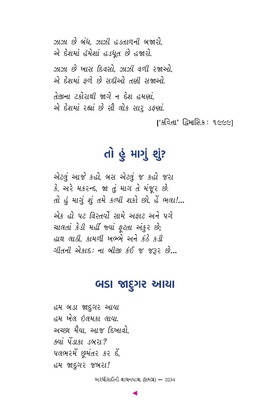 ઝાઝા છે બંધ, ઝાઝી હડતાળની બજારો,
એ દેશમાં હંમેશાં હડધૂત છે હજારો.
ઝાઝા છે ખાસ દિવસો, ઝાઝી વળી રજાઓ,
એ દેશમાં ફળે છે સદીઓ તણી સજાઓ.
તેજીના ટકોરાથી જાગે ન દેશ હમણાં,
એ દેશમાં રહ્યાં છે સૌ લોક સારુ ડફણાં.
['કવિતા' દ્વિમાસિક: ૧૯૯૯]
તો હું માગું શું?
એટલું આજે કહો, બસ એટલું જ કહો જરા
કે, અરે મકરન્દ, જા તું માગ તે મંજૂર છે.
તો હું માગું શું તમે કલ્પી શકો છો, હેં ભલા!...
એક હો પટ વિસ્તર્યો સામે અફાટ અને પગે
ચાલતાં કેડી મહીં જ્યાં ફૂટતા અંકુર છે;
હાથ લાઠી, કામળી ખભ્ભે અને કંઠે કડી
ગીતની એકાદ: ના બીજી કંઈ જ જરૂર છે...
બડા જાદુગર આયા
હમ બડા જાદુગર આયા
હમ ખેલ ઈલમકા લાયા.
અચ્છા મૈયા, આજ દિખાવો,
ક્યાં પેંડાકા ડબરા?
પલભરમેં છૂમંતર કર દેં,
હમ જાદુગર જબરા!
— 2034